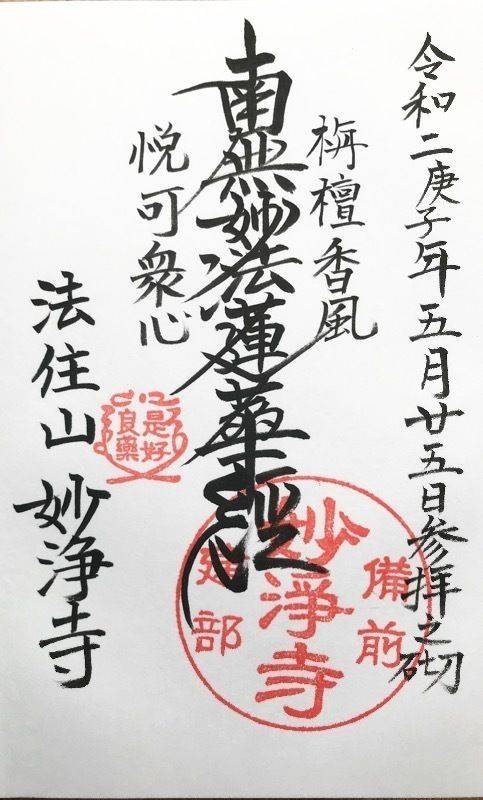 令和二庚子年五月廿五日参拝之砌
栴檀香風
南無妙法蓮華経
悦可衆心
法住山 妙浄寺
是好
良薬
備前
妙浄寺
建部